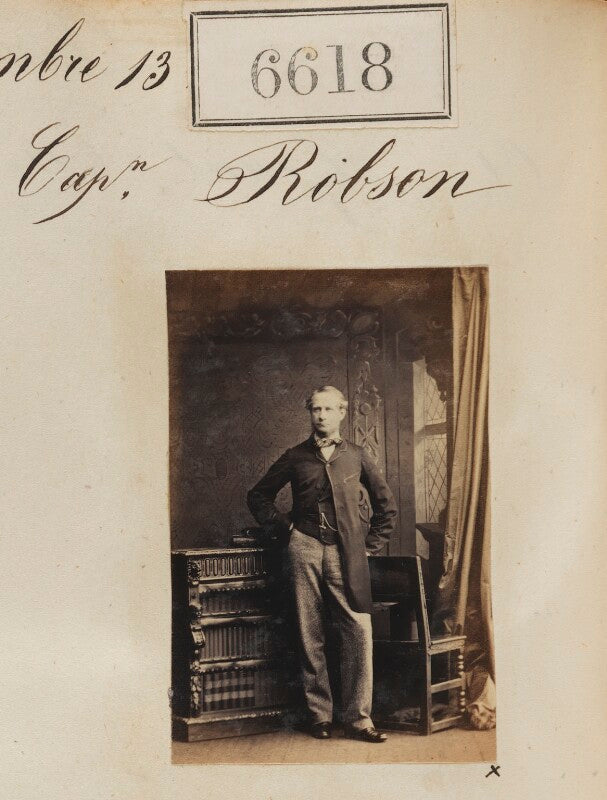 mbre 13
6618
Capn. Robson
x